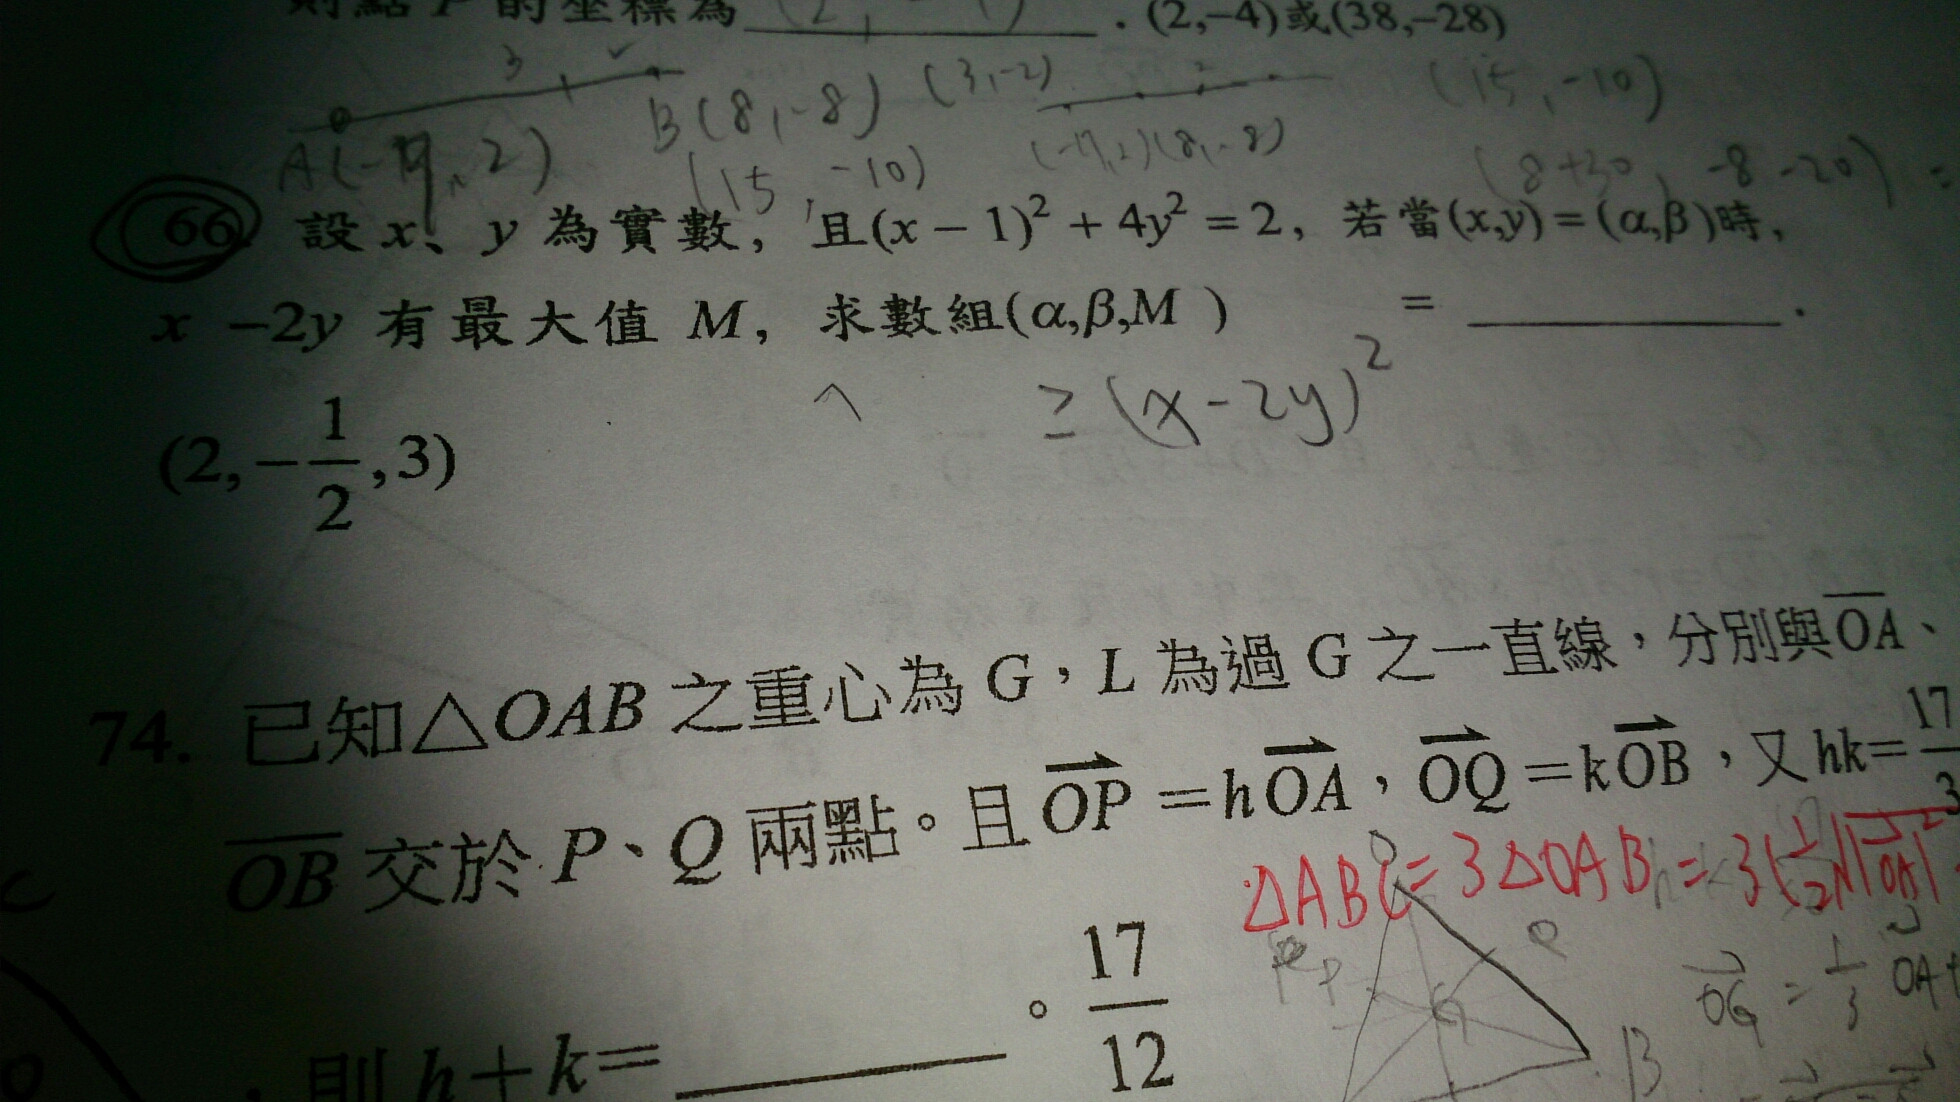 則點 P 的坐標為 . (2,−4)或(38,−28)
3
A(-17, 2) B(8,-8) (3,-2) (15,-10)
(15,-10) (-17,2)(8,-8) (8+30, -8-20)
66. 設 x、y 為實數，且(x − 1)² + 4y² = 2，若當(x,y) = (α,β)時，
x −2y 有最大值 M，求數組(α,β,M ) = ______ .
≥ (x-2y)²
(2,−1/2,3)
74. 已知△OAB 之重心為 G，L 為過 G 之一直線，分別與OA、
OB 交於 P、Q 兩點。且OP =hOA，OQ =kOB，又 hk= 17/3
△ABC = 3△OAB = 3(1/2√|OA|²
P Q
G B OG = 1/3 OA+
則 h+k= ______ 。17/12